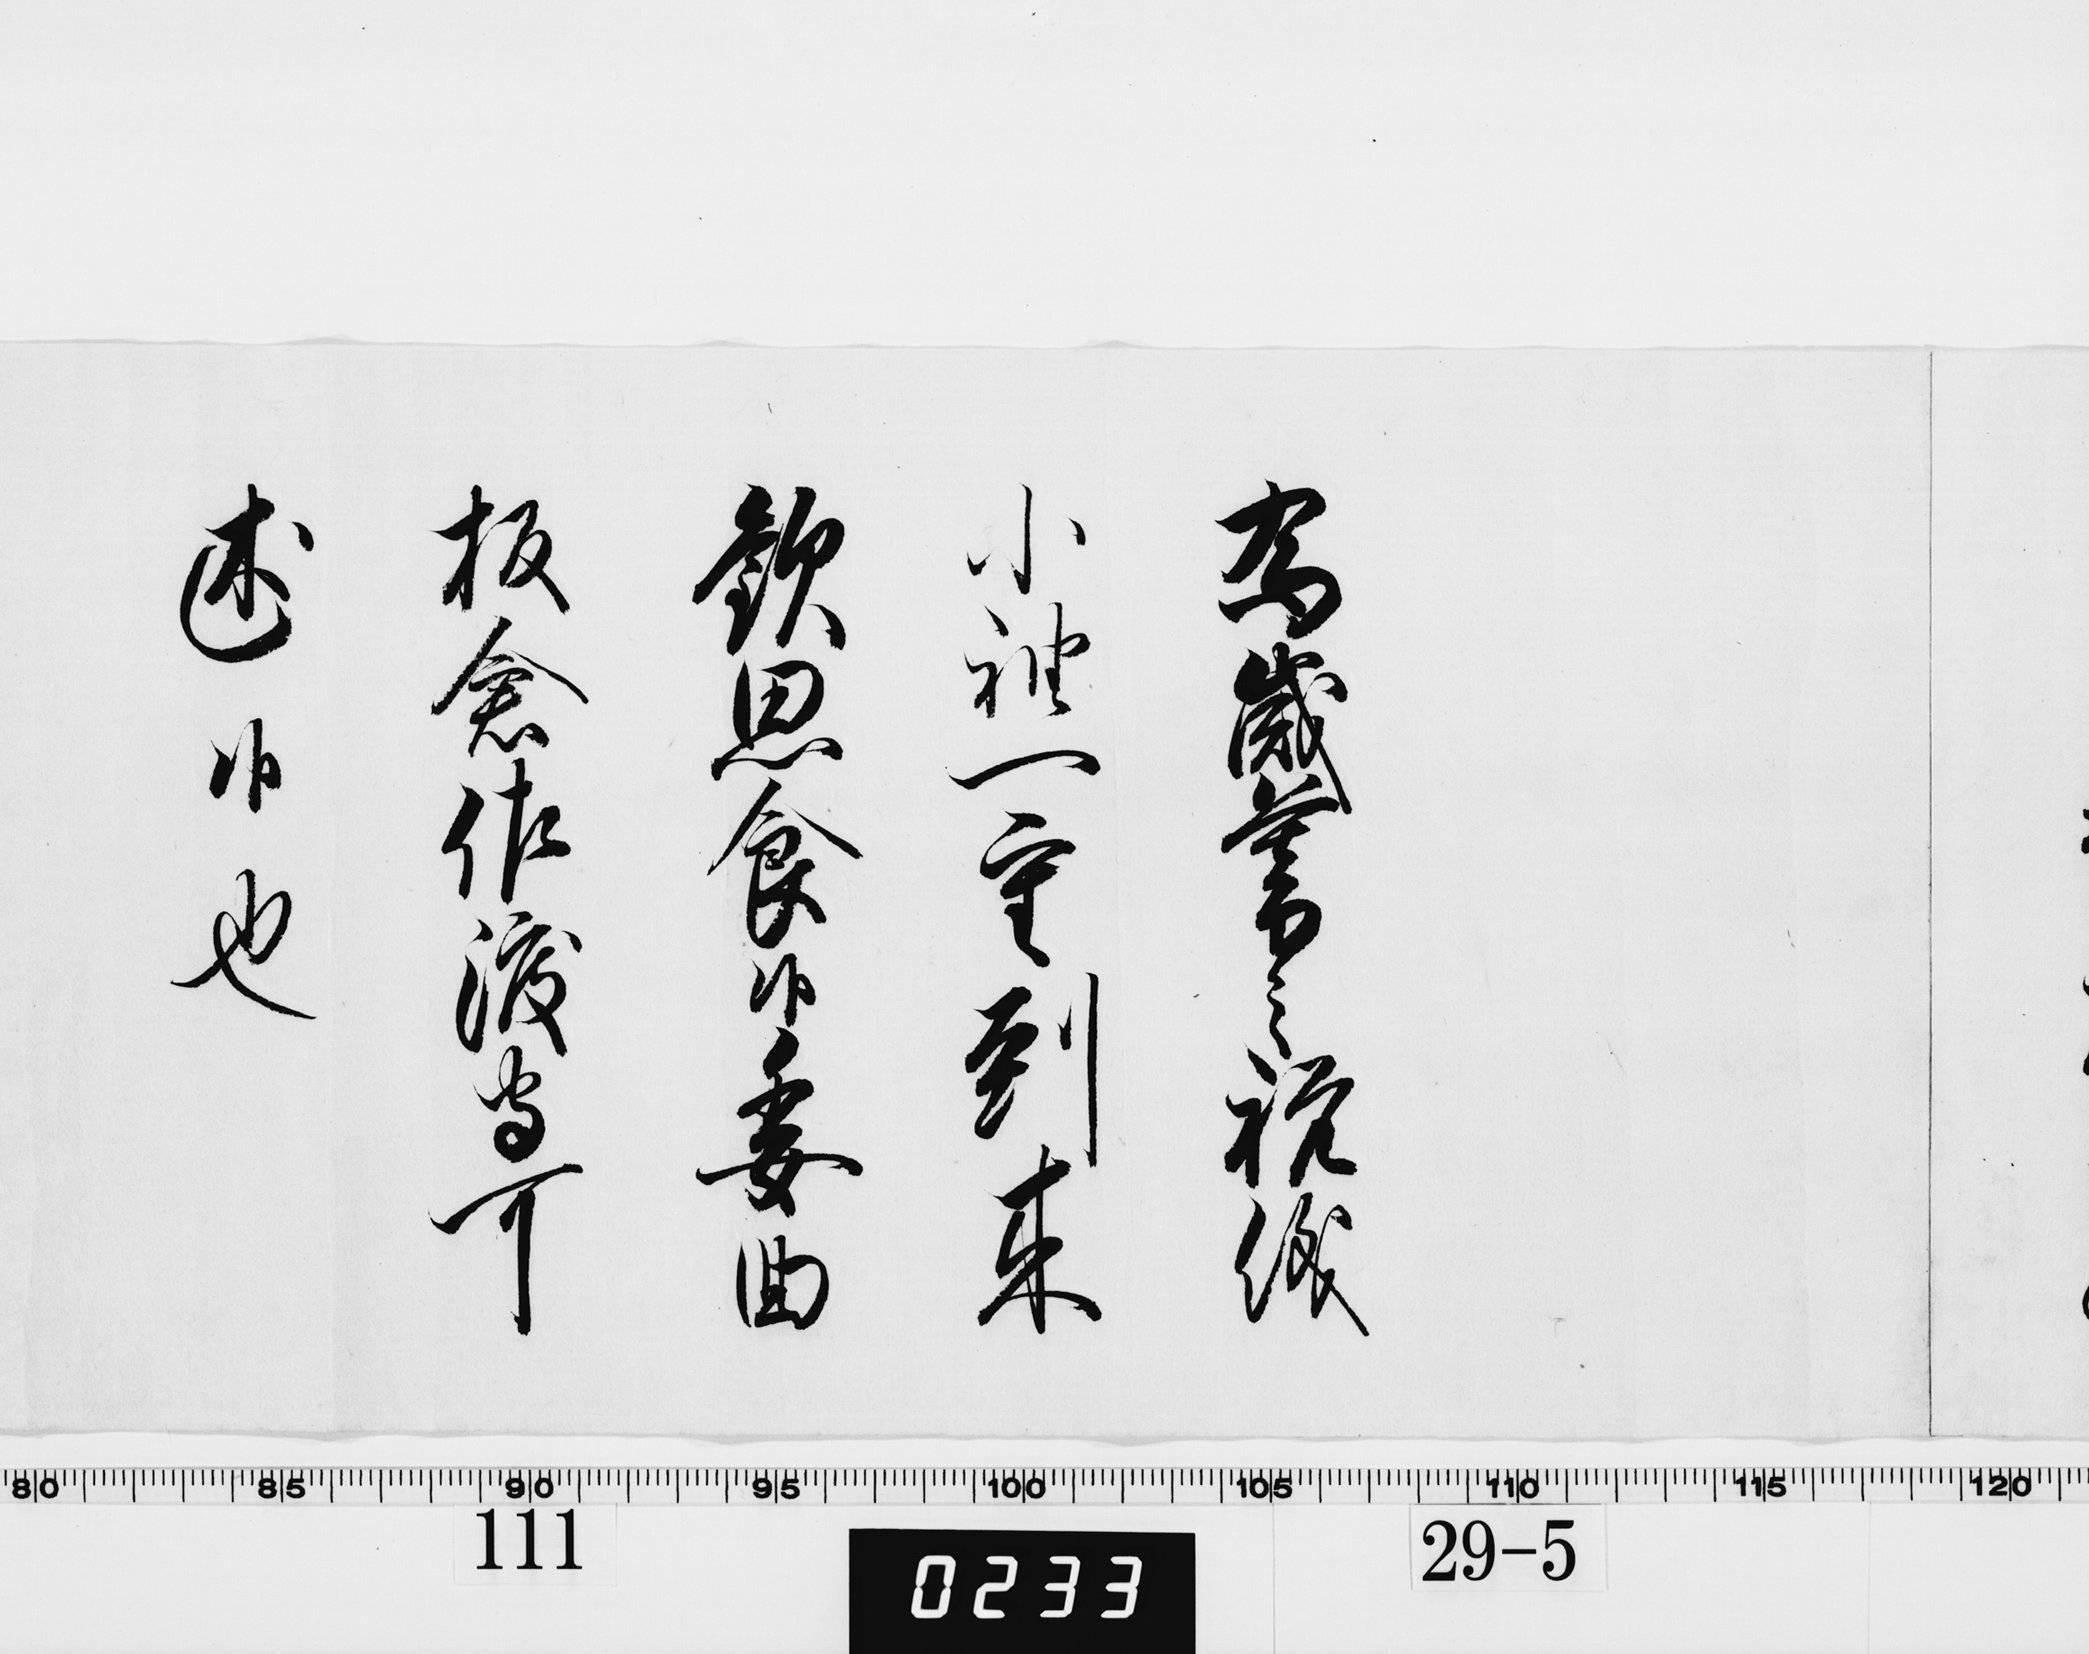 為歳暮之祝儀
小袖一重到来
歓思食候委曲
板倉佐渡守可
述候也
80 85 90 95 100 105 110 115 120
111
0233
29-5